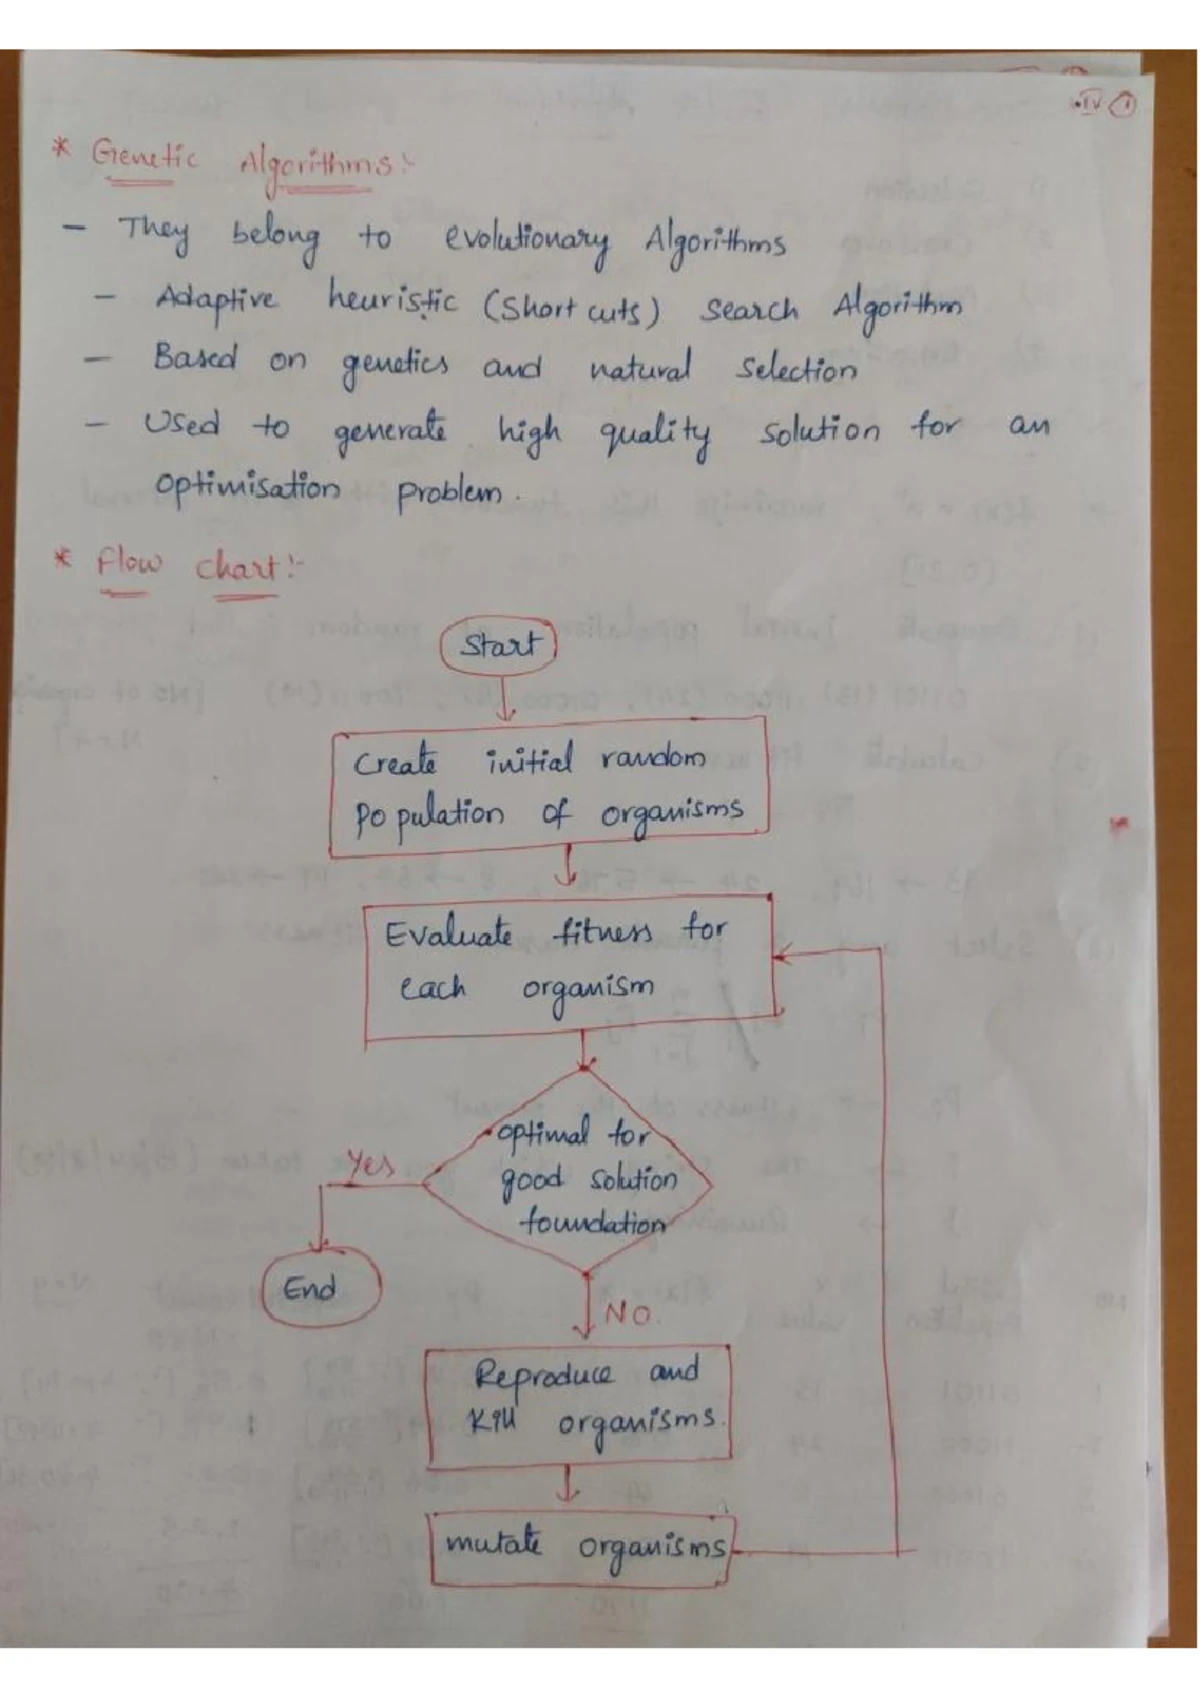 IV 1
* Genetic Algorithms:-
- They belong to evolutionary Algorithms
- Adaptive heuristic (Short cuts) Search Algorithm
- Based on genetics and natural Selection
- Used to generate high quality solution for an
optimisation problem.
* Flow chart:-
Start
Create initial random
Population of organisms
Evaluate fitness for
each organism
optimal for
good solution
foundation
Yes
End
NO.
Reproduce and
Kill organisms.
mutate organisms